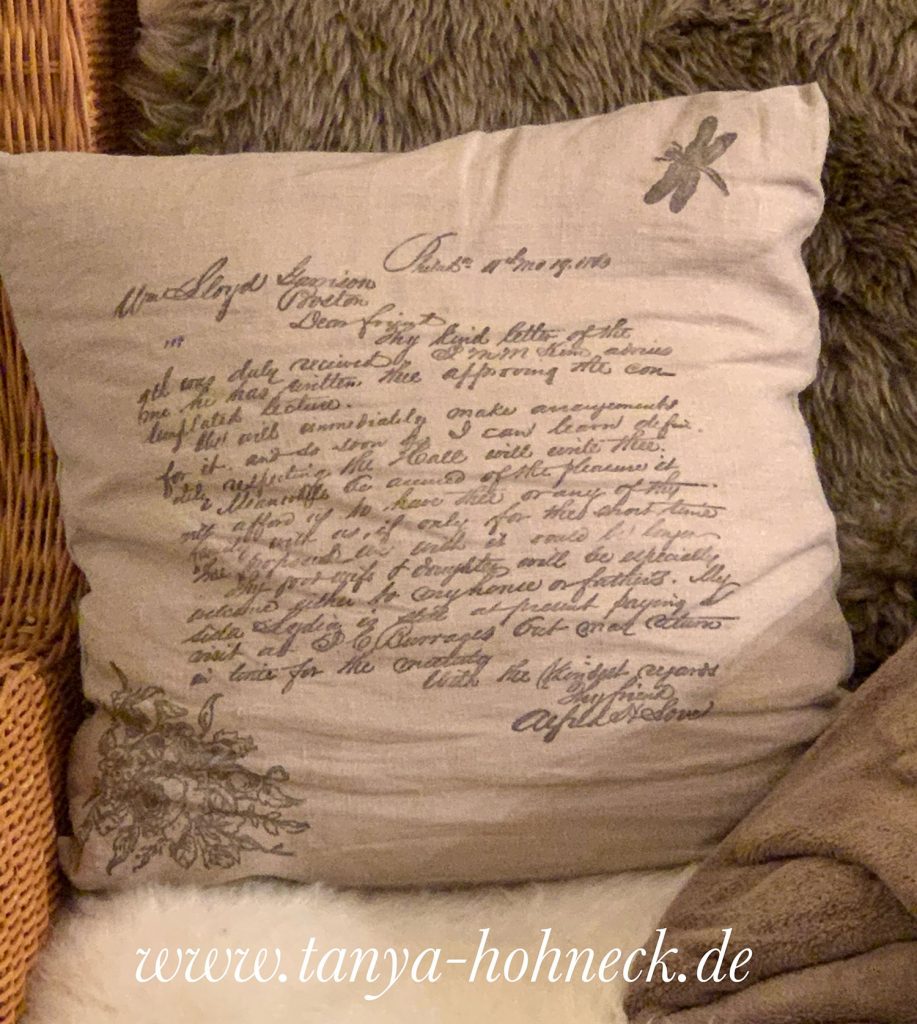 Philada 11th mo 19. 1860
Wm Lloyd Garrison
Boston
Dear friend
Thy kind letter of the
was duly received. advises
me he has written thee approving the con
templated lecture.
will immediately make arrangements
for it. and so soon as I can learn defin.
itely respecting the Hall will write thee.
Meanwhile be assured of the pleasure it
afford to have thee or any of thy
family with us, if only for the short time
proposed we wish it could be longer
Thy good wife & daughter will be especially
welcome either to my house or father's. My
sister Lydia is at present paying a
visit at Burrages but may return
in time for the meeting
With the kindest regards
Thy friend
Alfred H Love
www.tanya-hohneck.de